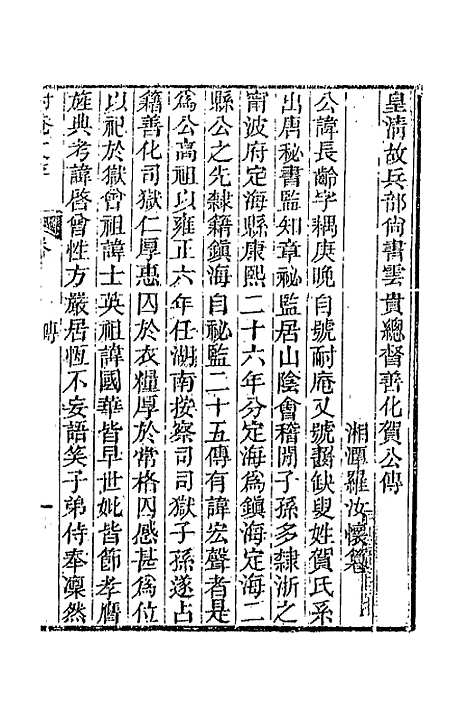 皇清故兵部尚書雲貴總督善化賀公傳
湘潭羅汝懷纂
公諱長齡字耦庚晚自號耐庵又號齧缺叟姓賀氏系
出唐秘書監知章祕監居山陰會稽閒子孫多隸浙之
甯波府定海縣康熙二十六年分定海為鎮海定海二
縣公之先隸籍鎮海自祕監二十五傳有諱宏聲者是
為公高祖以雍正六年任湖南按察司司獄子孫遂占
籍善化司獄仁厚惠囚於衣糧厚於常格囚感甚為位
以祀於獄曾祖諱士英祖諱國華皆早世妣皆節孝膺
旌典考諱啓曾性方嚴居恆不妄語笑子弟侍奉凜然
傳
一